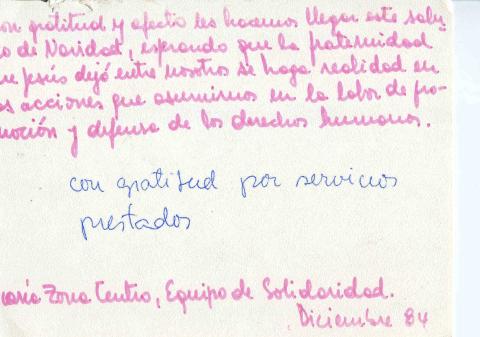 on gratitud y afecto les hacemos llegar este salu-
o de Navidad, esperando que la fraternidad
ue Jesús dejó entre nosotros se haga realidad en
os acciones que asumimos en la labor de pro-
moción y defensa de los derechos humanos.
con gratitud por servicios
prestados
caría Zona Centro, Equipo de Solidaridad.
Diciembre 84